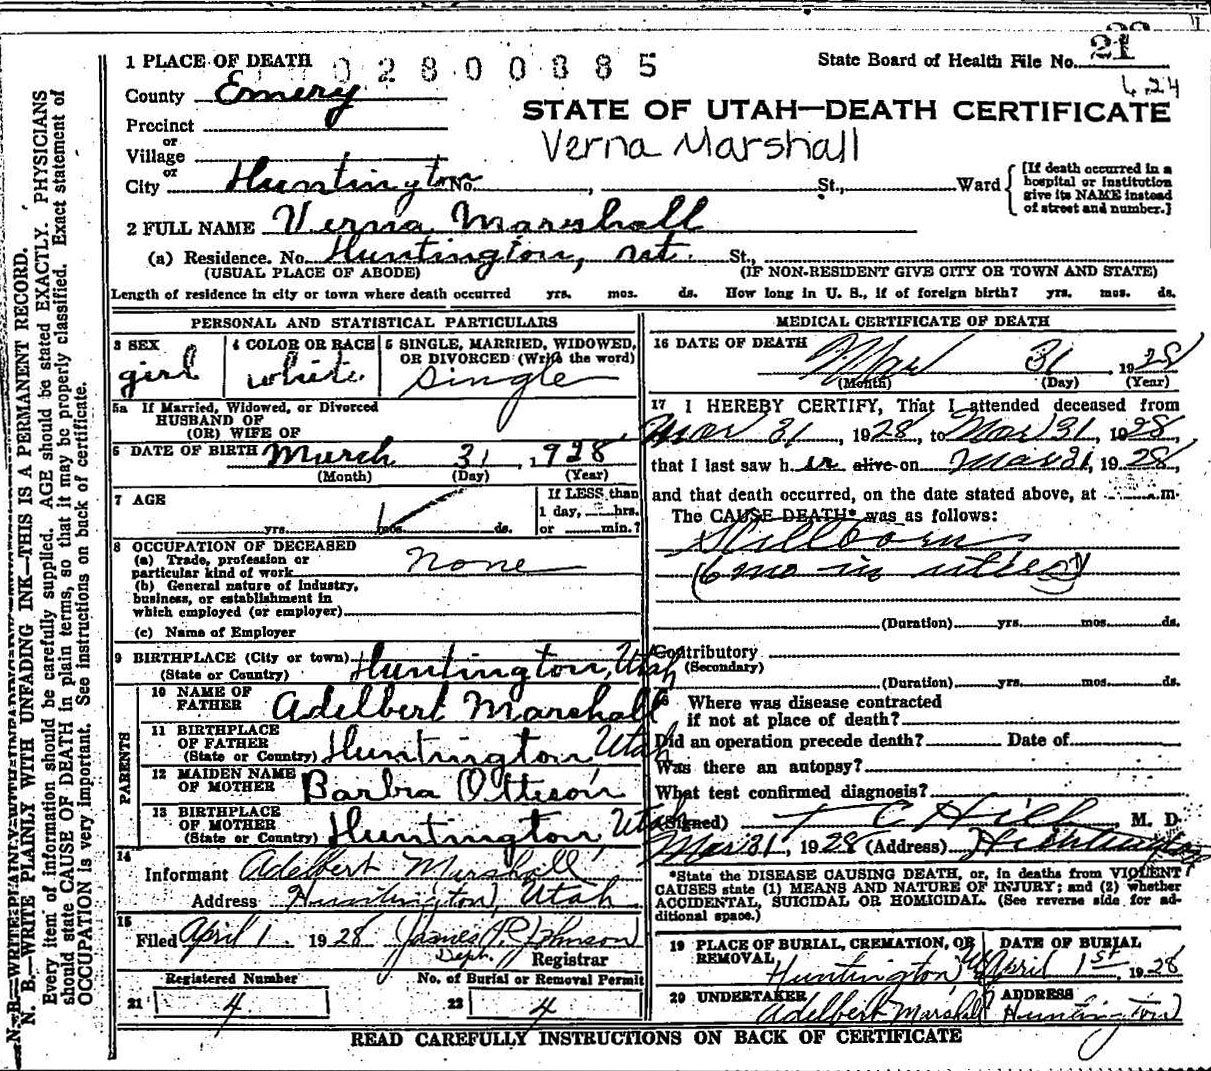 21
1 PLACE OF DEATH 0 2 8 0 0 8 8 5 State Board of Health File No. 21
County Emery 424
STATE OF UTAH—DEATH CERTIFICATE
Precinct
or
Village
Verna Marshall
or
City Huntington No. , St., Ward
[If death occurred in a
hospital or institution
give its NAME instead
of street and number.]
2 FULL NAME Verna Marshall
(a) Residence. No. Huntington, ut. St.,
(USUAL PLACE OF ABODE) (IF NON-RESIDENT GIVE CITY OR TOWN AND STATE)
Length of residence in city or town where death occurred yrs. mos. ds. How long in U. S., if of foreign birth? yrs. mos. ds.
PERSONAL AND STATISTICAL PARTICULARS
3 SEX
girl
4 COLOR OR RACE
white
5 SINGLE, MARRIED, WIDOWED,
OR DIVORCED (Write the word)
single
5a If Married, Widowed, or Divorced
HUSBAND OF
(OR) WIFE OF
6 DATE OF BIRTH March 31, 1928
(Month) (Day) (Year)
7 AGE
yrs. mos. ds.
If LESS than
1 day, hrs.
or min.?
8 OCCUPATION OF DECEASED
(a) Trade, profession or
particular kind of work none
(b) General nature of industry,
business, or establishment in
which employed (or employer)
(c) Name of Employer
9 BIRTHPLACE (City or town) Huntington, Utah
(State or Country)
PARENTS
10 NAME OF
FATHER Adelbert Marshall
11 BIRTHPLACE
OF FATHER
(State or Country) Huntington Utah
12 MAIDEN NAME
OF MOTHER Barbra Otteson
13 BIRTHPLACE
OF MOTHER
(State or Country) Huntington Utah
14
Informant Adelbert Marshall
Address Huntington, Utah
15
Filed April 1. 1928 James P. Johnson
Deph. Registrar
Registered Number No. of Burial or Removal Permit
21 4 22 4
MEDICAL CERTIFICATE OF DEATH
16 DATE OF DEATH
Mar 31 1928
(Month) (Day) (Year)
17 I HEREBY CERTIFY, That I attended deceased from
Mar 31, 1928, to Mar 31, 1928,
that I last saw her alive on Mar 31, 1928,
and that death occurred, on the date stated above, at m.
The CAUSE DEATH* was as follows:
Stillborn
(6 mo in utero)
(Duration) yrs. mos. ds.
Contributory
(Secondary)
(Duration) yrs. mos. ds.
18 Where was disease contracted
if not at place of death?
Did an operation precede death? Date of
Was there an autopsy?
What test confirmed diagnosis?
(Signed) T C Hill, M. D.
Mar 31, 1928 (Address) Huntington
*State the DISEASE CAUSING DEATH, or, in deaths from VIOLENT
CAUSES state (1) MEANS AND NATURE OF INJURY; and (2) whether
ACCIDENTAL, SUICIDAL OR HOMICIDAL. (See reverse side for ad-
ditional space.)
19 PLACE OF BURIAL, CREMATION, OR
REMOVAL
Huntington, U
DATE OF BURIAL
April 1st, 1928
20 UNDERTAKER
Adelbert Marshall
ADDRESS
Huntington
READ CAREFULLY INSTRUCTIONS ON BACK OF CERTIFICATE
N. B.—WRITE PLAINLY WITH UNFADING INK—THIS IS A PERMANENT RECORD.
Every item of information should be carefully supplied. AGE should be stated EXACTLY. PHYSICIANS
should state CAUSE OF DEATH in plain terms, so that it may be properly classified. Exact statement of
OCCUPATION is very important. See instructions on back of certificate.